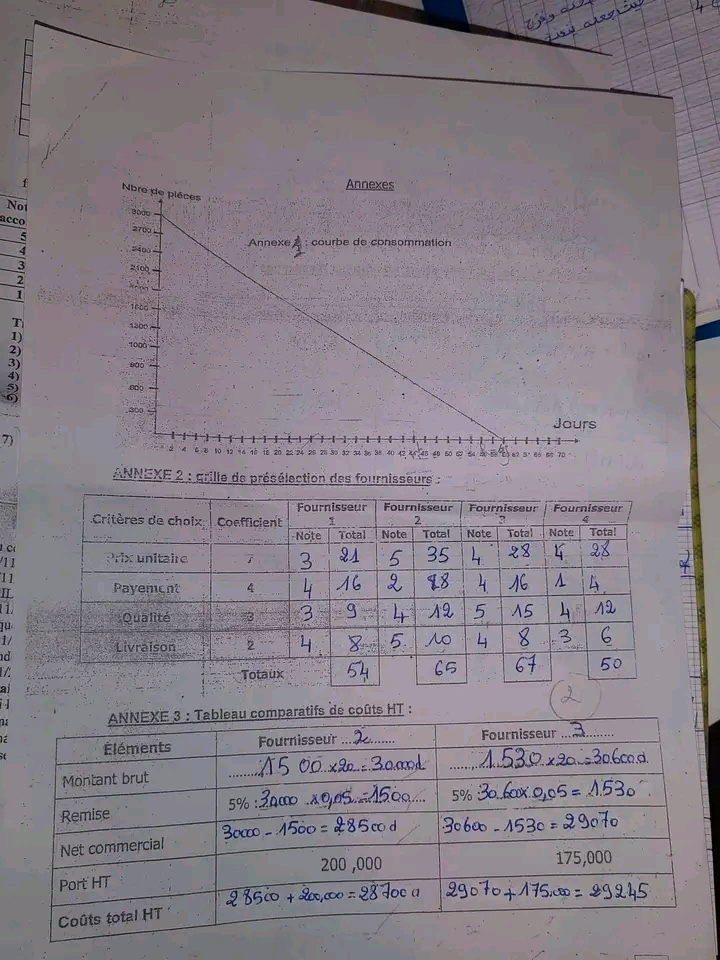 Annexes
Nbre de pièces
Annexe 1 : courbe de consommation
3000
2700
2400
2100
1500
1200
1000
900
600
300
Jours
2 4 6 8 10 12 14 16 18 20 22 24 26 28 30 32 34 36 38 40 42 44 46 48 50 52 54 56 58 60 62 64 66 68 70
ANNEXE 2 : grille de présélection des fournisseurs :
Critères de choix Coefficient Fournisseur 1 Fournisseur 2 Fournisseur 3 Fournisseur 4
Note Total Note Total Note Total Note Total
Prix unitaire 7 3 21 5 35 4 28 4 28
Payement 4 4 16 2 18 4 16 1 4
Qualité 3 3 9 4 12 5 15 4 12
Livraison 2 4 8 5 10 4 8 3 6
Totaux 54 65 67 50
2
ANNEXE 3 : Tableau comparatifs de coûts HT :
Éléments Fournisseur ...2....... Fournisseur ...3.......
Montant brut 1500 x20 = 30000d 1.530 x20 = 30600d
Remise 5% : 30000 x0,05 = 1500 5% : 30600x0,05 = 1530
Net commercial 30000 - 1500 = 28500d 30600 - 1530 = 29070
Port HT 200 ,000 175,000
Coûts total HT 28500 + 200,000 = 28700d 29070 + 175,000 = 29245